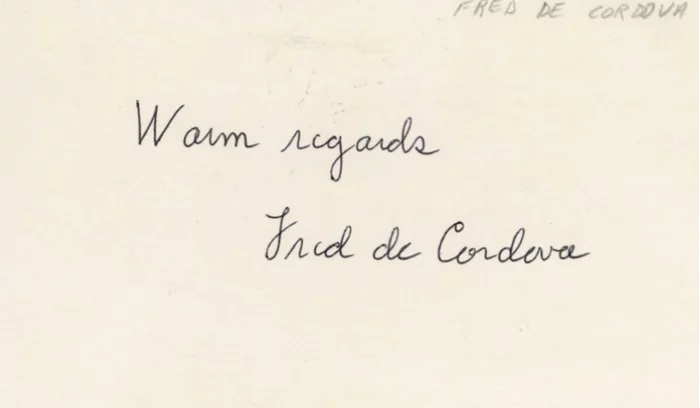 FRED DE CORDOVA
Warm regards
Fred de Cordova